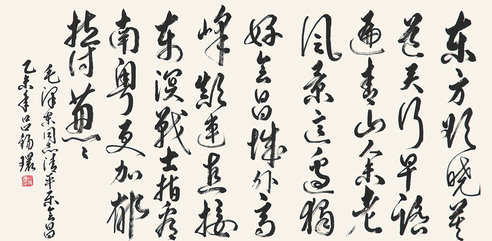 东方欲晓莫
道君行早踏
遍青山人未老
风景这边独
好会昌城外高
峰颠连直接
东溟战士指看
南粤更加郁
郁葱々
毛泽东同志清平乐会昌
乙未年吕锡环